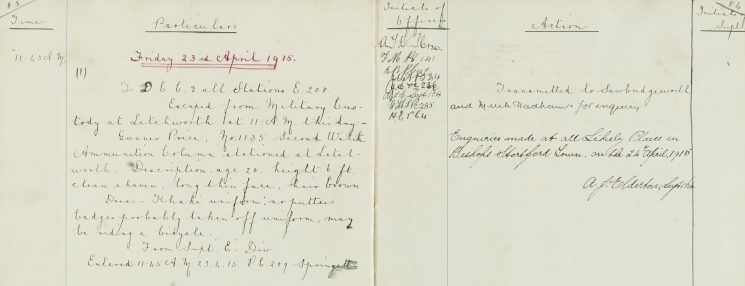 83
Time
Particulars
Friday 23rd April 1915.
11-45 A.M.
(1)
To D E C. & all Stations E. 208.
Escaped from Military Cus-
tody at Letchworth at 11-A.M. this day-
Gunner Price, No 1135 Second
Ammunition Column stationed at Letch-
worth. Description, age 20, height 6 ft.
clean shaven, long thin face, hair brown
Dress- Khaki uniform, no puttees
badges probably taken off uniform, may
be riding a bicycle.
From Supt. E. Div.
Entered 11-45 A.M. 23.4.15. P.C. 209 Springett
Initials of
Officer
141
84
236
Sergt
285
Action
Transmitted to Sawbridgeworth
and Much Hadham for enquiry
Enquiries made at all Likely Places in
Bishops Stortford Town. on the 24th April, 1915
A. J. Elderton, Sergt
84
Initials
Supt